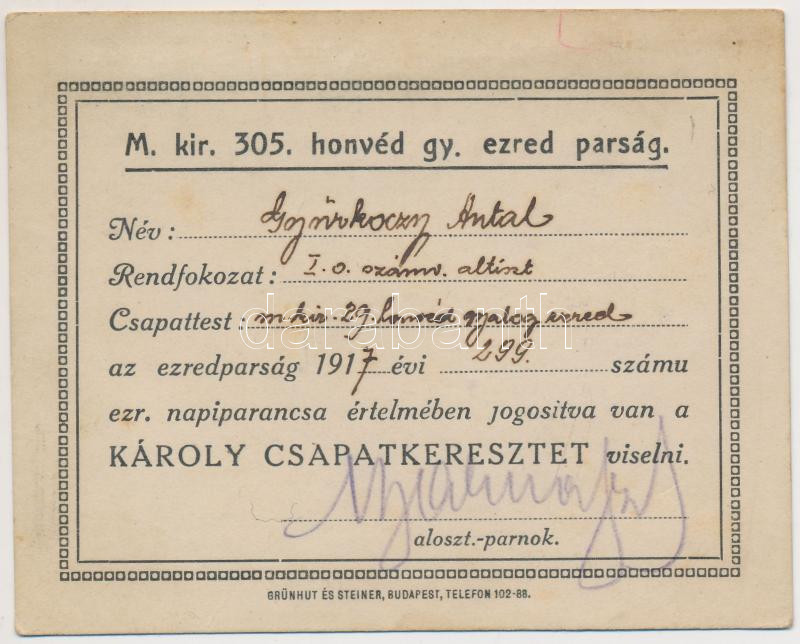 M. kir. 305. honvéd gy. ezred parság.
Név: Györkoczy Antal
Rendfokozat: I. o. számv. altiszt
Csapattest: m. kir. 29. honvéd gyalog ezred
darabanth
az ezredparság 1917 évi 299. számu
ezr. napiparancsa értelmében jogositva van a
KÁROLY CSAPATKERESZTET viselni.
aloszt.-parnok.
GRÜNHUT ÉS STEINER, BUDAPEST, TELEFON 102-88.